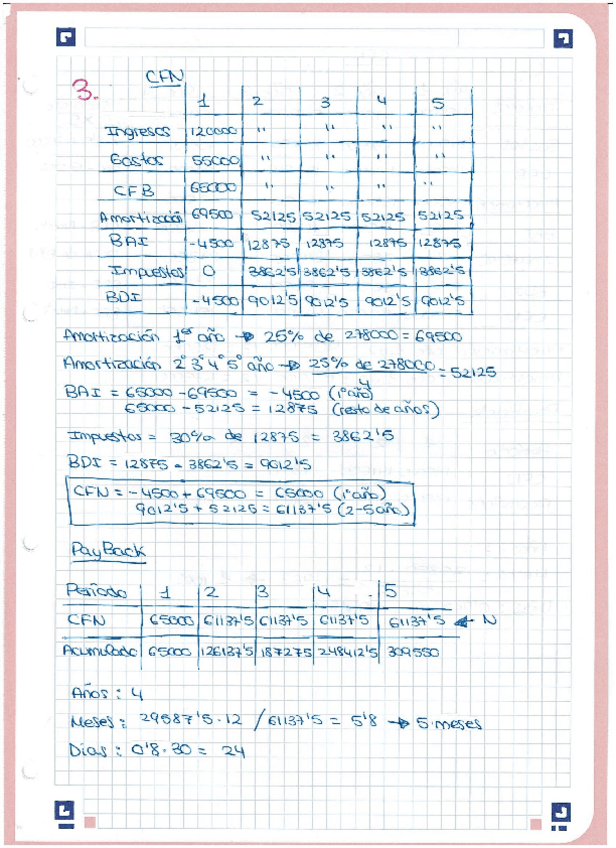 3.
CFN
1 2 3 4 5
Ingresos 120000 '' '' '' ''
Gastos 55000 '' '' '' ''
CFB 65000 '' '' '' ''
Amortización 69500 52125 52125 52125 52125
BAI -4500 12875 12875 12875 12875
Impuestos 0 3862'5 3862'5 3862'5 3862'5
BDI -4500 9012'5 9012'5 9012'5 9012'5
Amortización 1er año → 25% de 278000 = 69500
Amortización 2º 3º 4º 5º año → 25% de 278000 / 4 = 52125
BAI = 65000 - 69500 = -4500 (1º año)
65000 - 52125 = 12875 (resto de años)
Impuestos = 30% de 12875 = 3862'5
BDI = 12875 - 3862'5 = 9012'5
CFN = -4500 + 69500 = 65000 (1º año)
9012'5 + 52125 = 61137'5 (2-5 año)
PayBack
Período 1 2 3 4 5
CFN 65000 61137'5 61137'5 61137'5 61137'5 ← N
Acumulado 65000 126137'5 187275 248412'5 309550
Años: 4
Meses: 29587'5·12 / 61137'5 = 5'8 → 5 meses
Días: 0'8·30 = 24